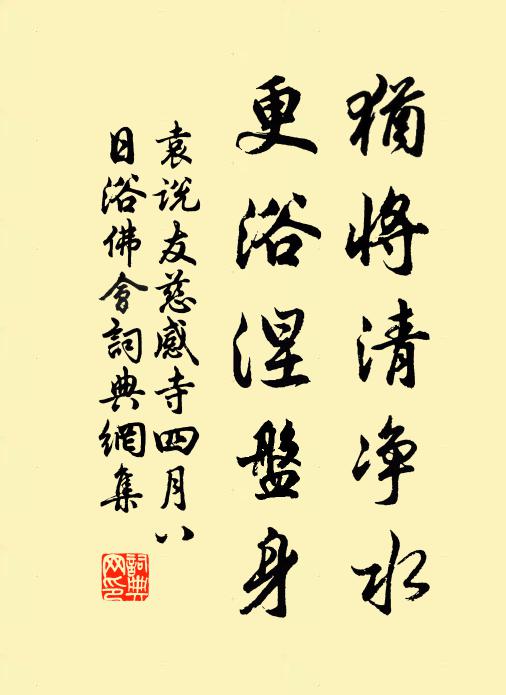 猶將清淨水
更浴涅盤身
袁說友慈感寺四月八
日浴佛會詞典網集
詞典
网印